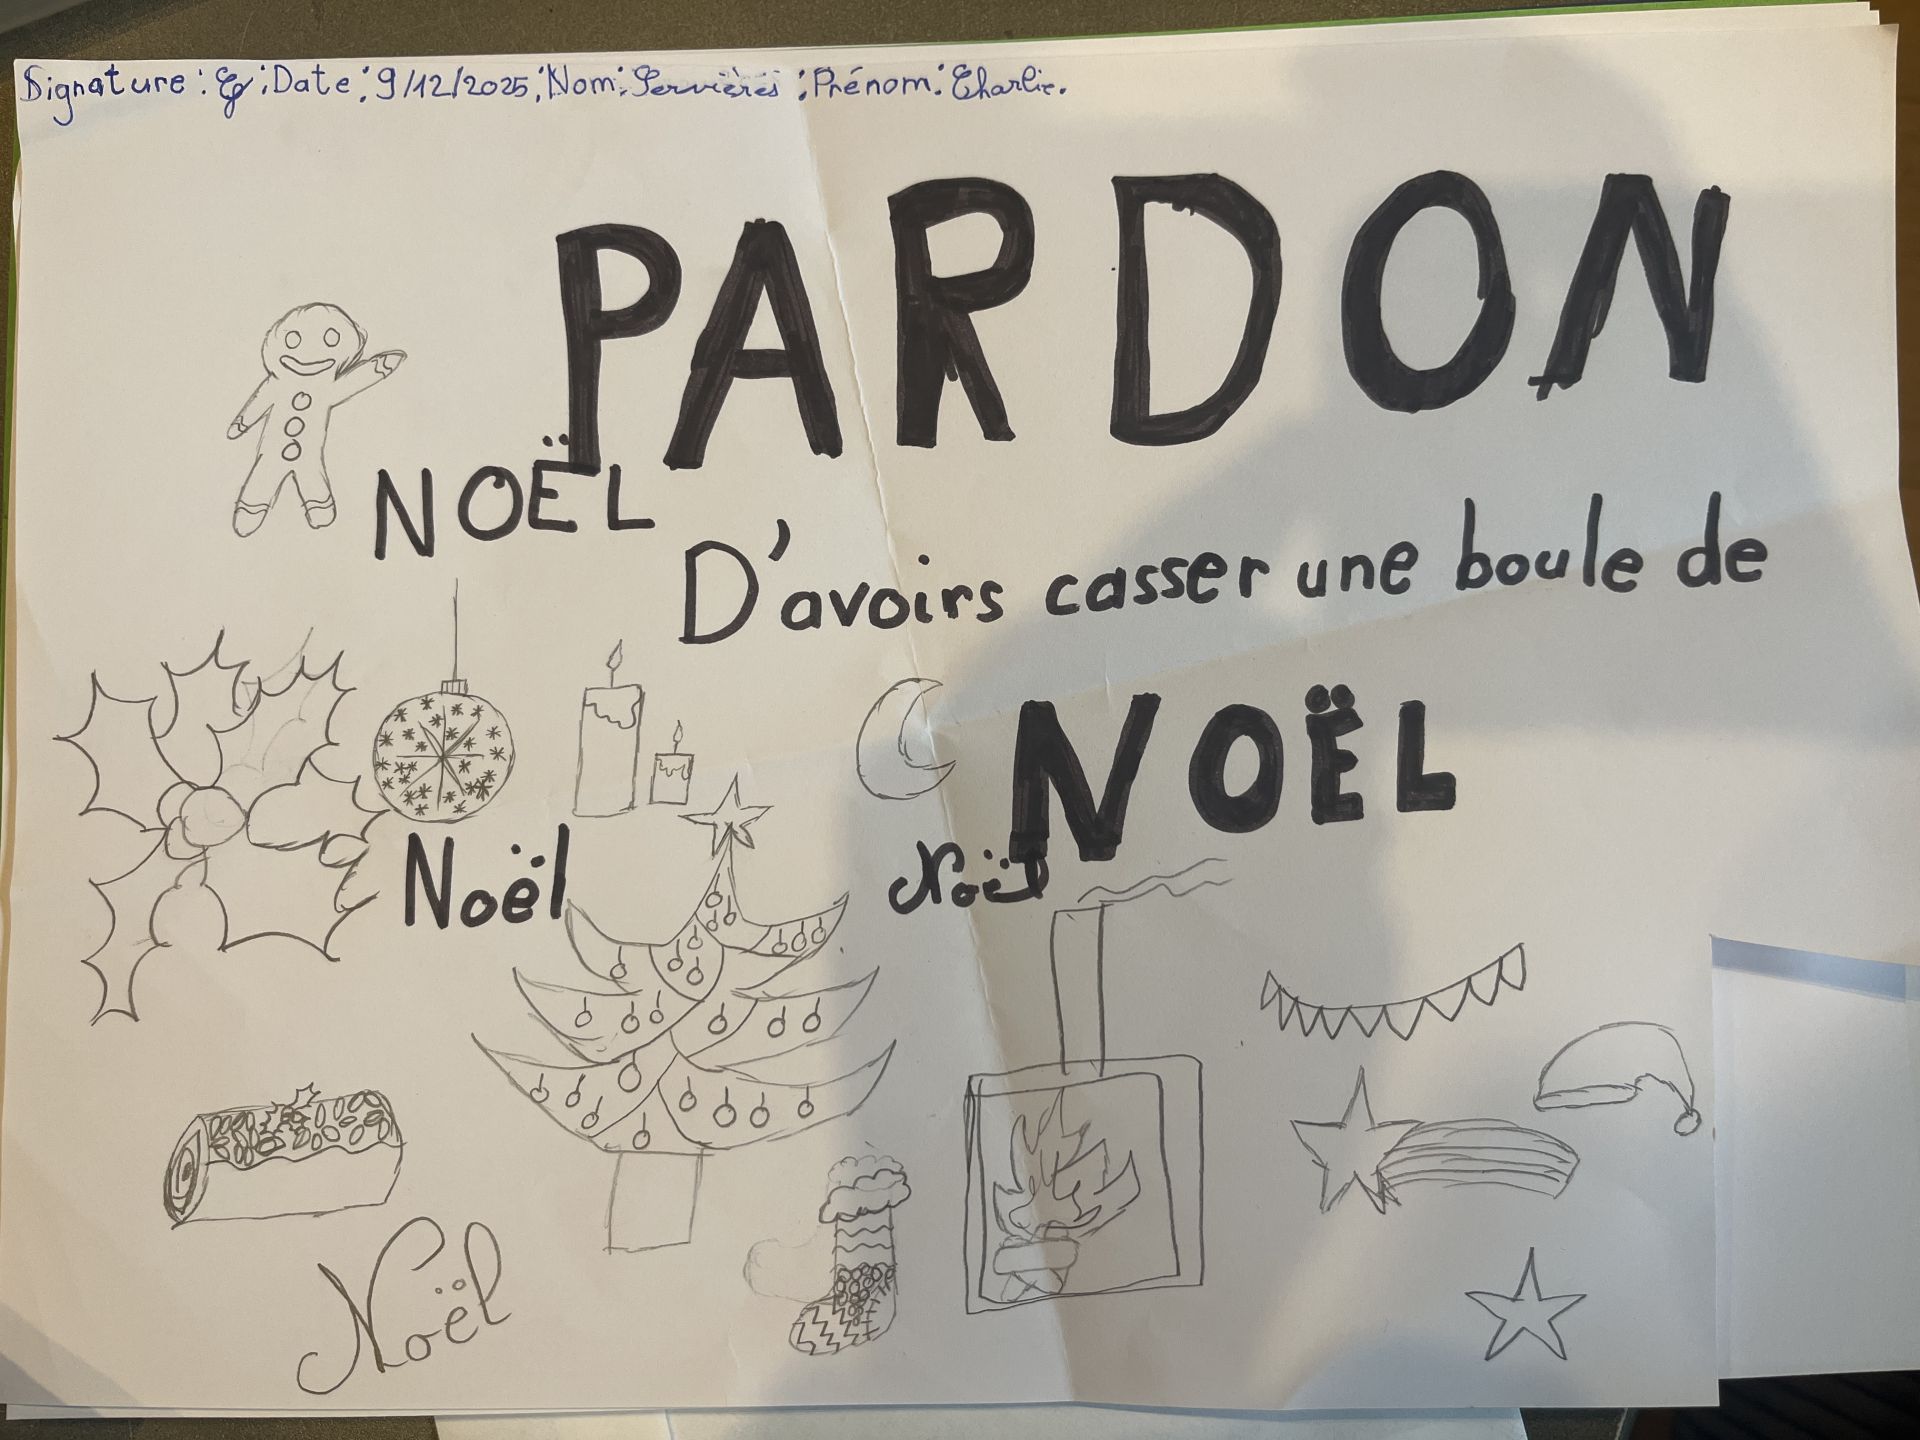 Signature : ; Date : 9/12/2025 ; Nom : Servières ; Prénom : Charlie.
PARDON
NOËL
D'avoirs casser une boule de
NOËL
Noël
Noël
Noël